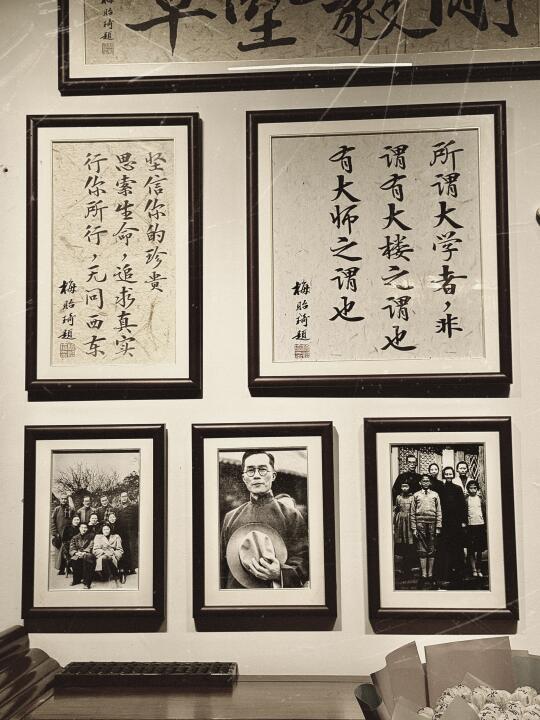 刚毅坚卓
贻琦题
所谓大学者，非
谓有大楼之谓也
有大师之谓也
梅贻琦题
坚信你的珍贵
思索生命，追求真实
行你所行，无问西东
梅贻琦题